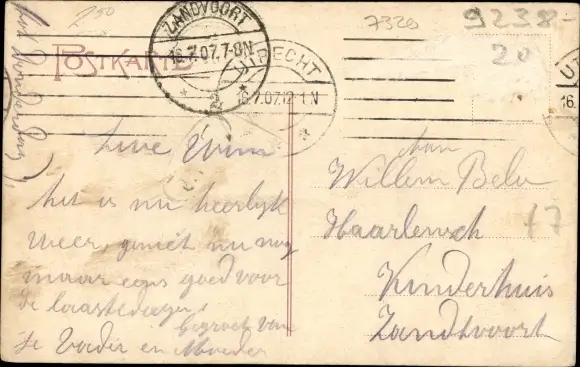 2.50
7320
9238-
20
POSTKAART
ZANDVOORT
16.7.07.7-8N
2
UTRECHT
16.7.07.12-1N
UT
16.
Lieve Wim
het is nu heerlijk
weer, geniet nu nog
maar eens goed voor
de laaste dagen,
Gegroet van
Je Vader en Moeder
Aan
Willem Bele
Haarlemsch
Kinderhuis
Zandtvoort
17